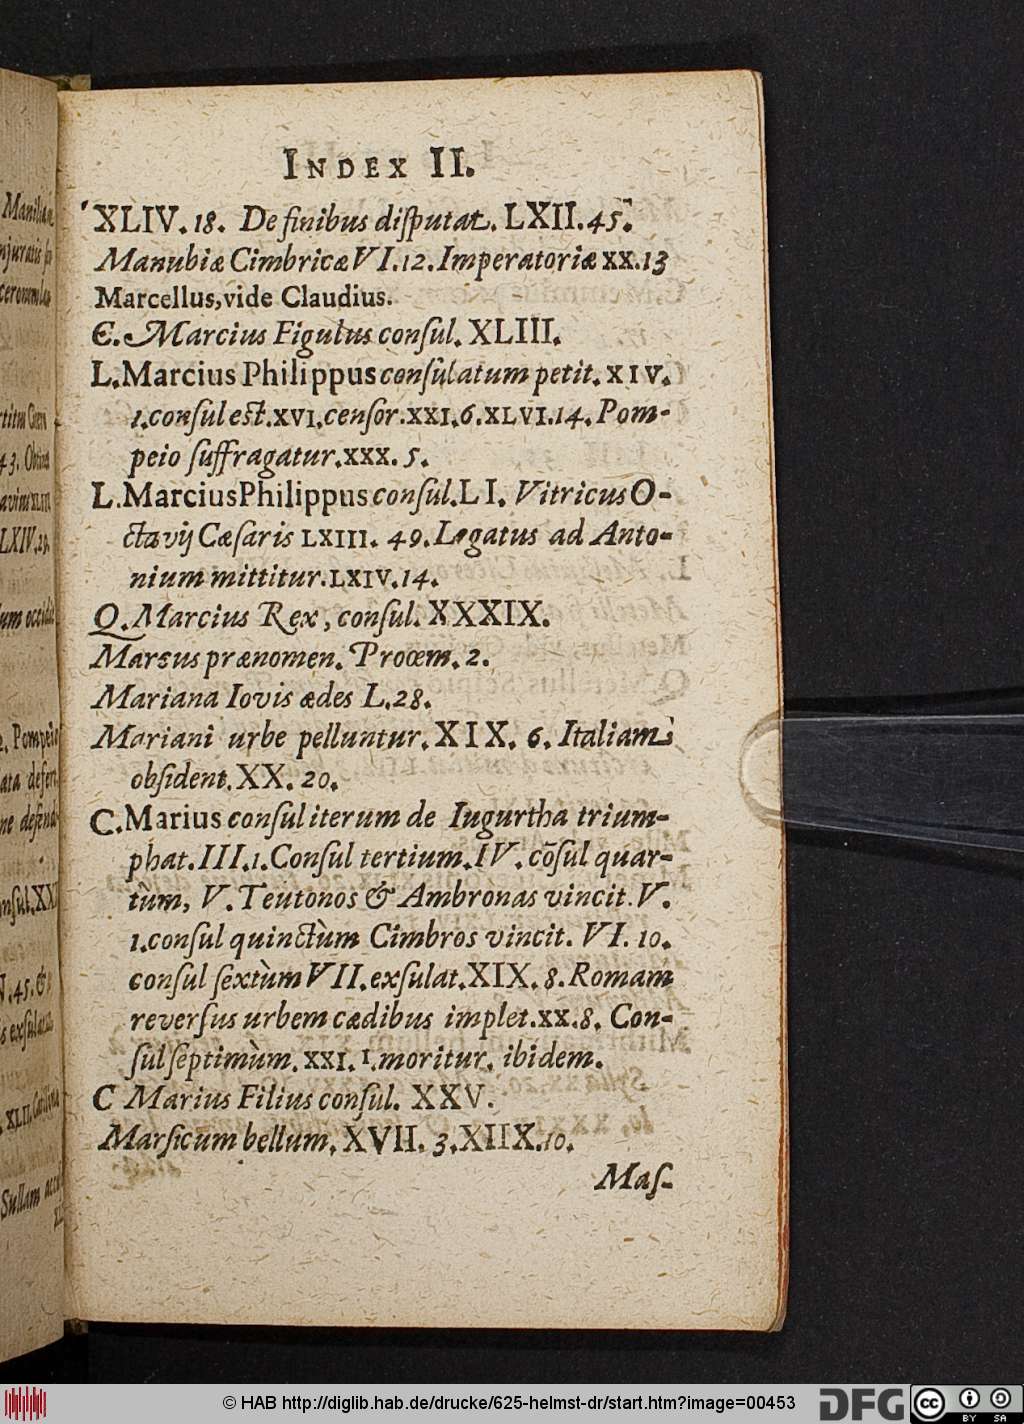 INDEX II.
XLIV. 18. De finibus diſputat. LXII. 45.
Manubiæ Cimbricæ VI. 12. Imperatoriæ XX. 13
Marcellus, vide Claudius.
C. Marcius Figulus conſul. XLIII.
L. Marcius Philippus conſulatum petit. XIV.
1. conſul eſt. XVI. cenſor. XXI. 6. XLVI. 14. Pom-
peio ſuffragatur. XXX. 5.
L. Marcius Philippus conſul. LI. Vitricus O-
ctavij Cæſaris LXIII. 49. Legatus ad Anto-
nium mittitur. LXIV. 14.
Q. Marcius Rex, conſul. XXXIX.
Marcus prænomen. Prooem. 2.
Mariana Iovis ædes L. 28.
Mariani urbe pelluntur. XIX. 6. Italiam
obſident. XX. 20.
C. Marius conſul iterum de Iugurtha trium-
phat. III. 1. Conſul tertium. IV. cõſul quar-
tùm, V. Teutonos & Ambronas vincit. V.
1. conſul quinctùm Cimbros vincit. VI. 10.
conſul ſextùm VII. exſulat. XIX. 8. Romam
reverſus urbem cædibus implet. XX. 8. Con-
ſul ſeptimùm. XXI. 1. moritur. ibidem.
C Marius Filius conſul. XXV.
Marſicum bellum. XVII. 3. XIIX. 10.
Maſ-
© HAB http://diglib.hab.de/drucke/625-helmst-dr/start.htm?image=00453
DFG
cc BY SA